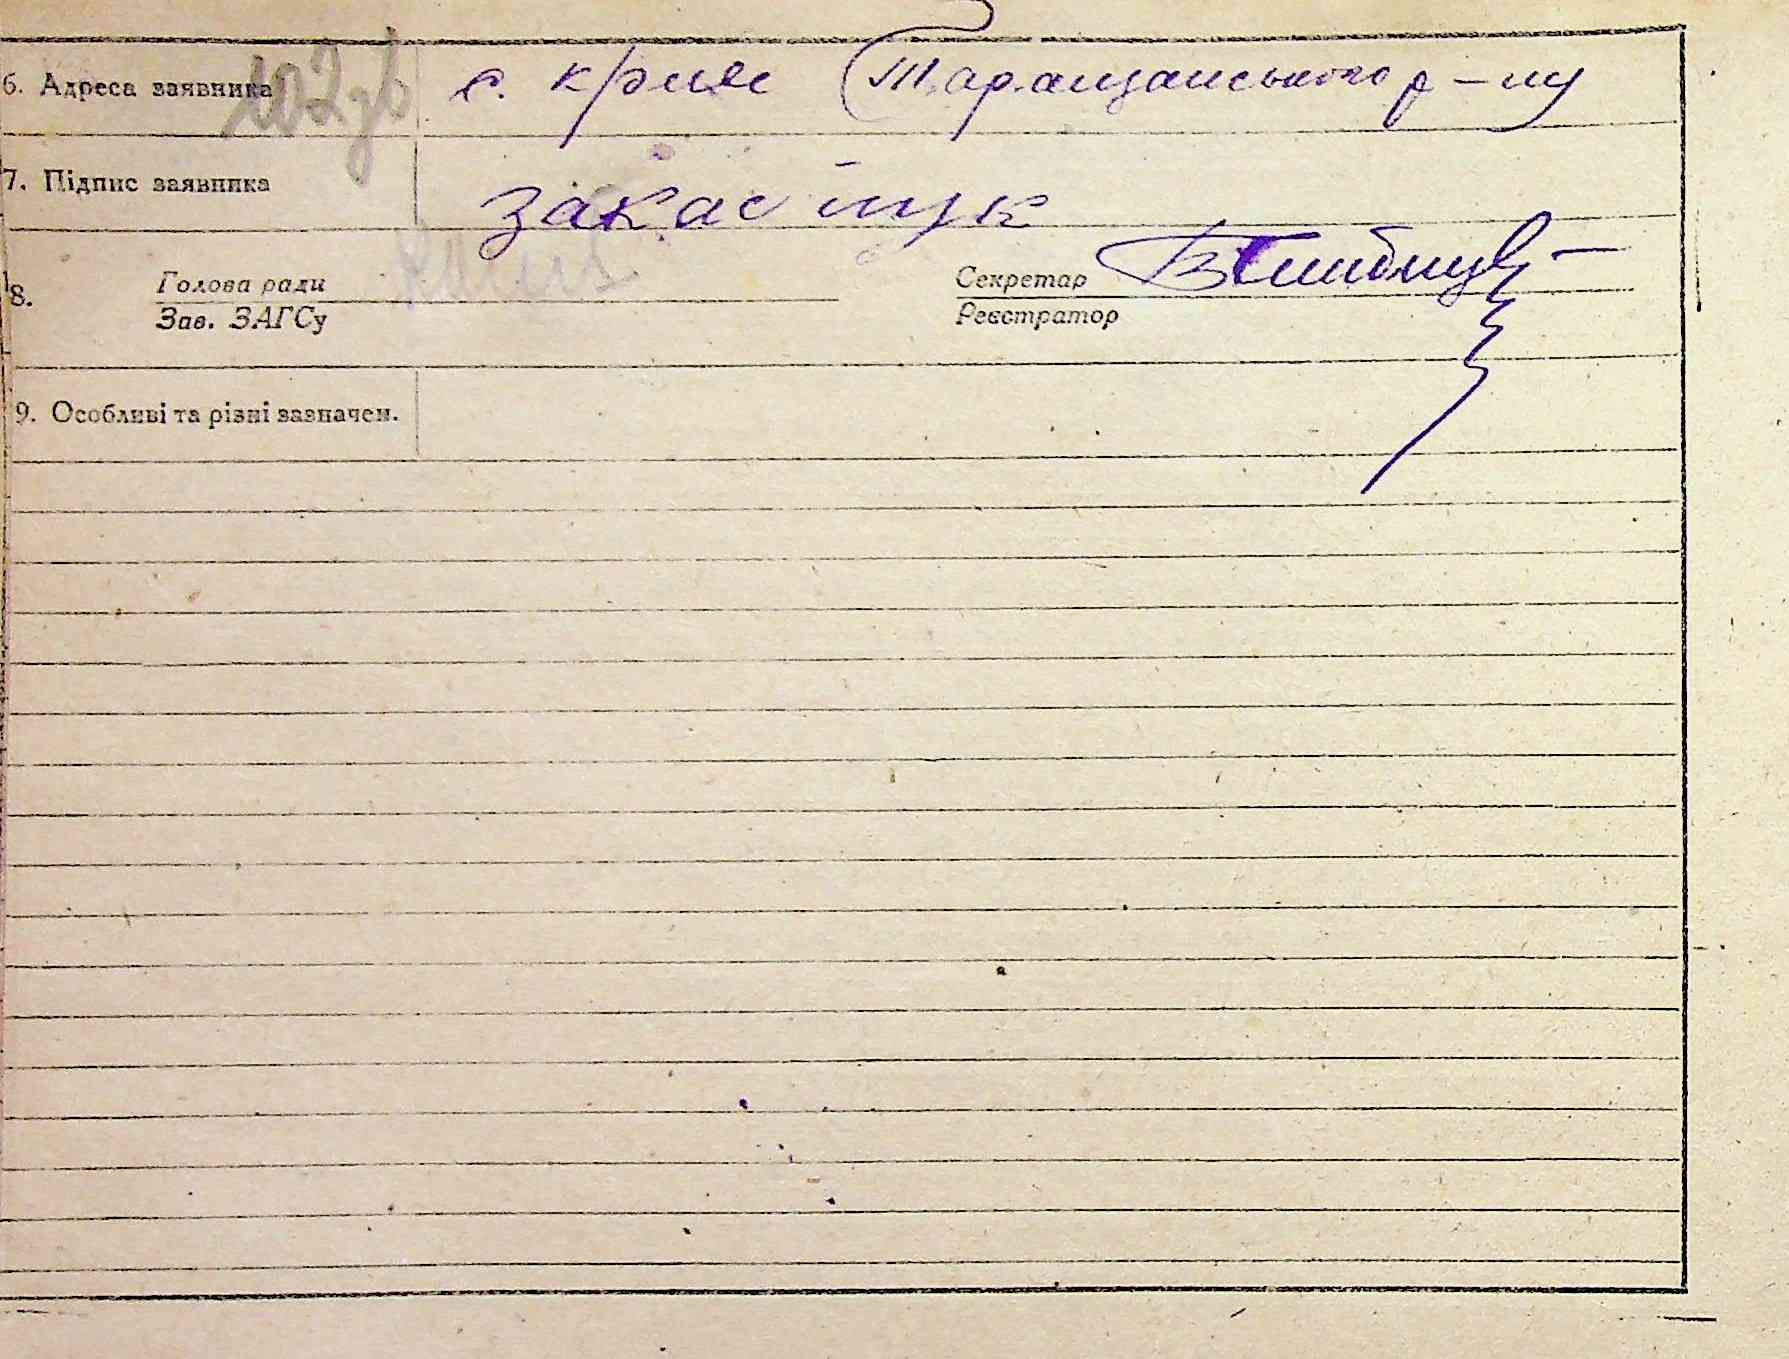 6. Адреса заявника с. крив Таращанського р-ну
7. Підпис заявника
8. Голова ради Секретар
Зав. ЗАГСу Реєстратор
9. Особливі та різні зазначен.